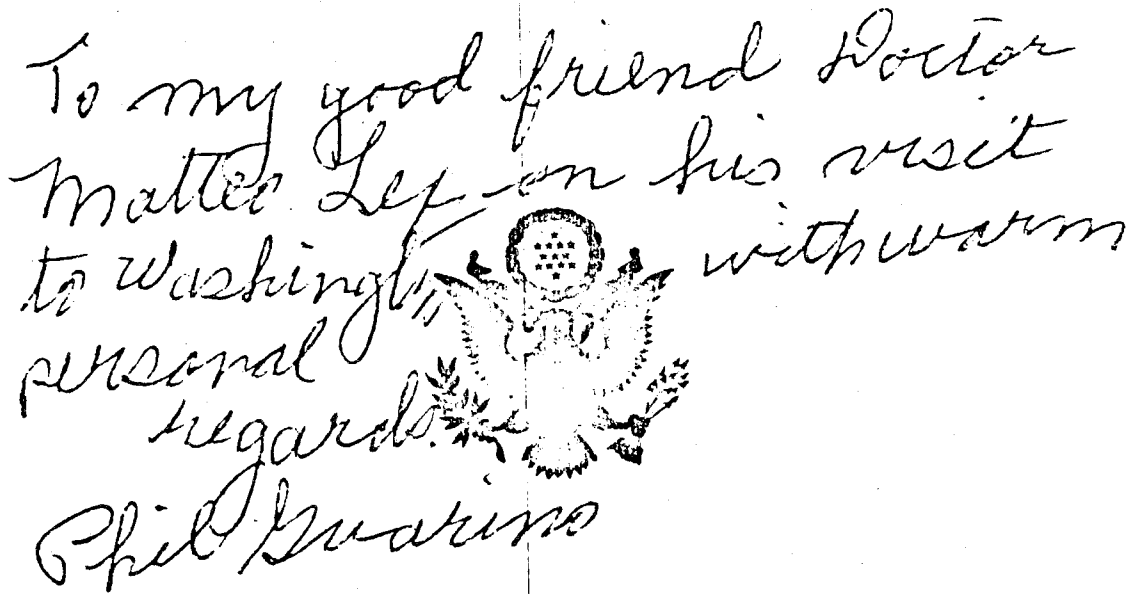 To my good friend Doctor
Matteo Lex on his visit
to Washington with warm
personal
regards.
Phil Guarino